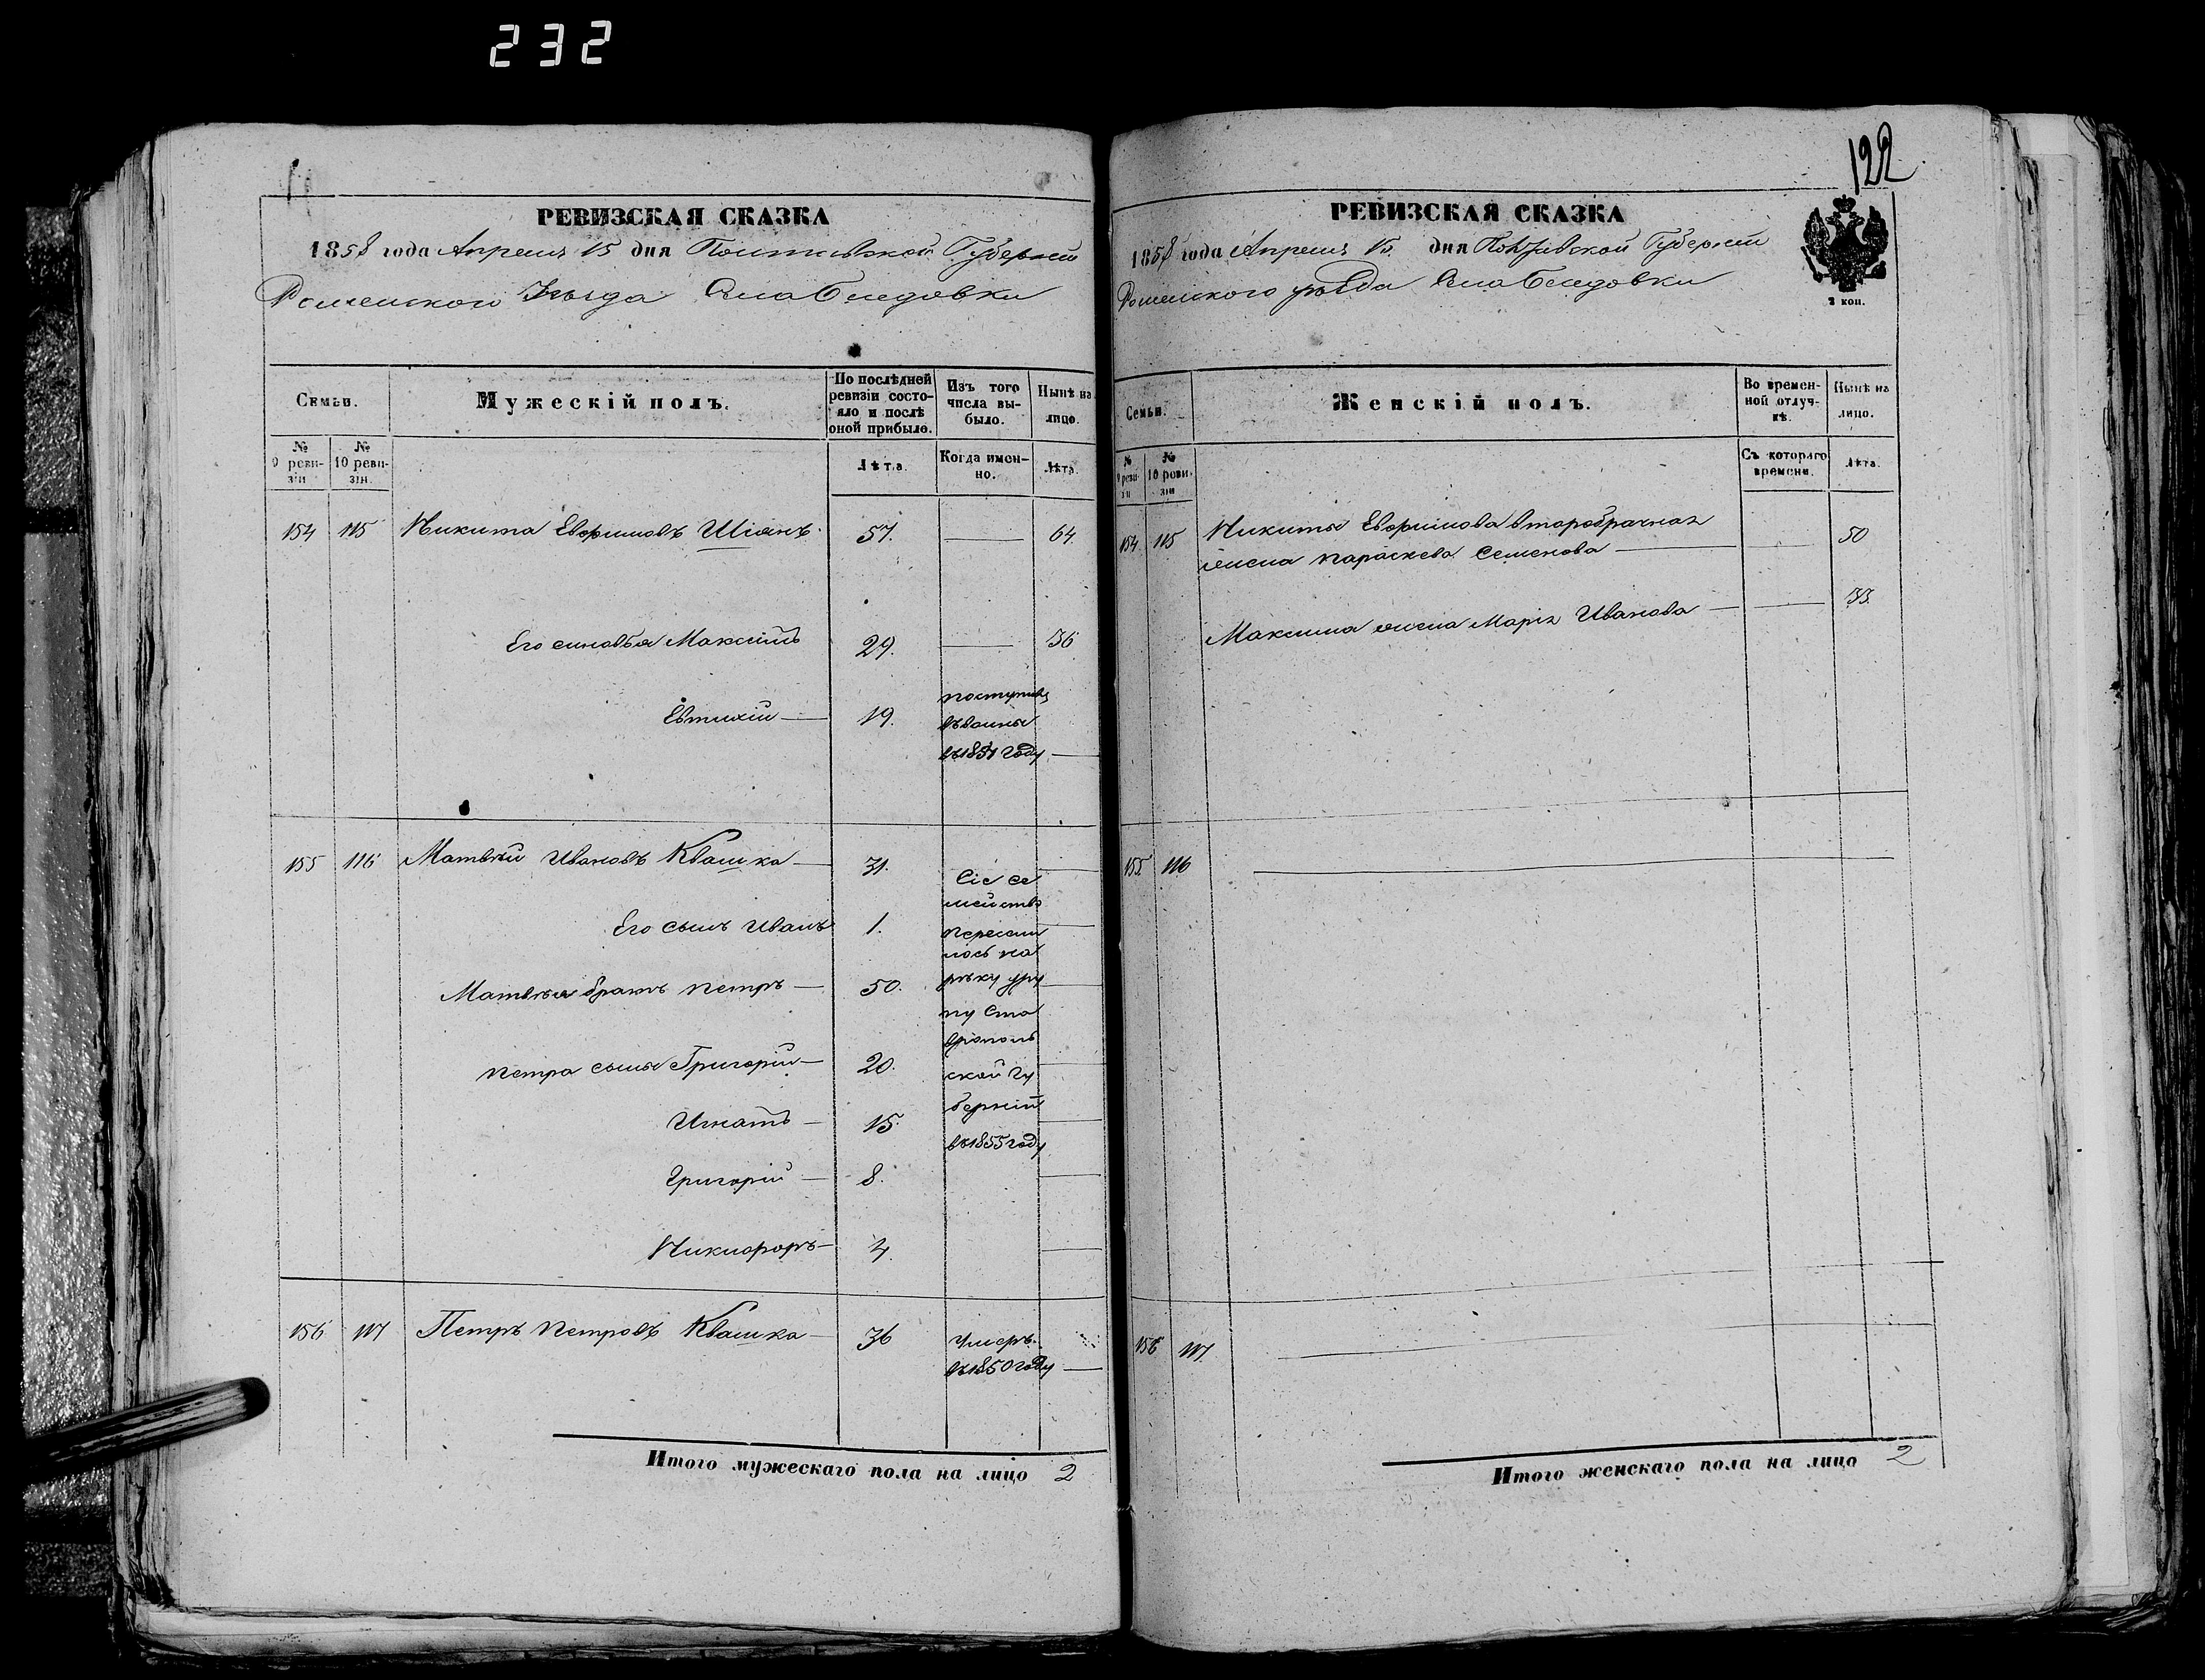 232
РЕВИЗСКАЯ СКАЗКА
1858 года Апреля 15 дня Полтавской Губерніи
Роменского Уѣзда Села Беседовки
Семьи.
Мужескій полъ.
По послѣдней ревизіи состояло и послѣ оной прибыло.
Изъ того числа выбыло.
Нынѣ на лицо.
№ 9 ревизіи
№ 10 ревизіи.
Лѣта.
Когда именно.
Лѣта.
154 115 Никита Евфимовъ Шіянъ 57. 64.
Его синовья Максимъ 29. 36
Евтихій 19. поступивъ
въ воины
въ 1851 году
155 116 Матвѣй Ивановъ Квашка 31.
Его сынъ Иванъ 1.
Матвѣя братъ Петръ 50.
Петра сыны Григорій 20.
Игнатъ 15.
Григорій 8.
Никифоръ 4.
Сіе се
мейство
пересели
лось на
рѣку уру
пу Ста
врополь
ской Гу
берніи
въ 1855 году
156 117 Петръ Петровъ Квашка 36 Умеръ
въ 1850 году
Итого мужескаго пола на лицо 2
122
РЕВИЗСКАЯ СКАЗКА
1858 года Апреля 15 дня Полтавской Губерніи
Роменского уѣзда Села Беседовки
2 коп.
Семьи.
Женскій полъ.
Во временной отлучкѣ.
Нынѣ на лицо.
№ 9 ревизіи
№ 10 ревизіи
Съ котораго времени.
Лѣта.
154. 115 Никиты Евфимова второбрачная
жена Параскева Семенова 50
Максима жена Марія Иванова 33.
155. 116
156 117.
Итого женскаго пола на лицо 2